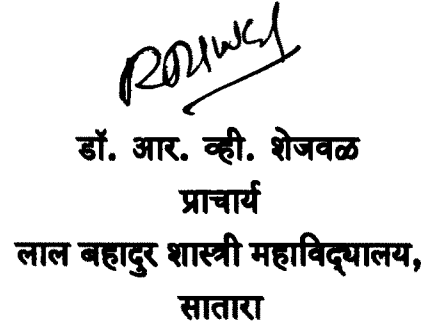 डॉ. आर. व्ही. शेजवळ
प्राचार्य
लाल बहादुर शास्त्री महाविद्यालय,
सातारा